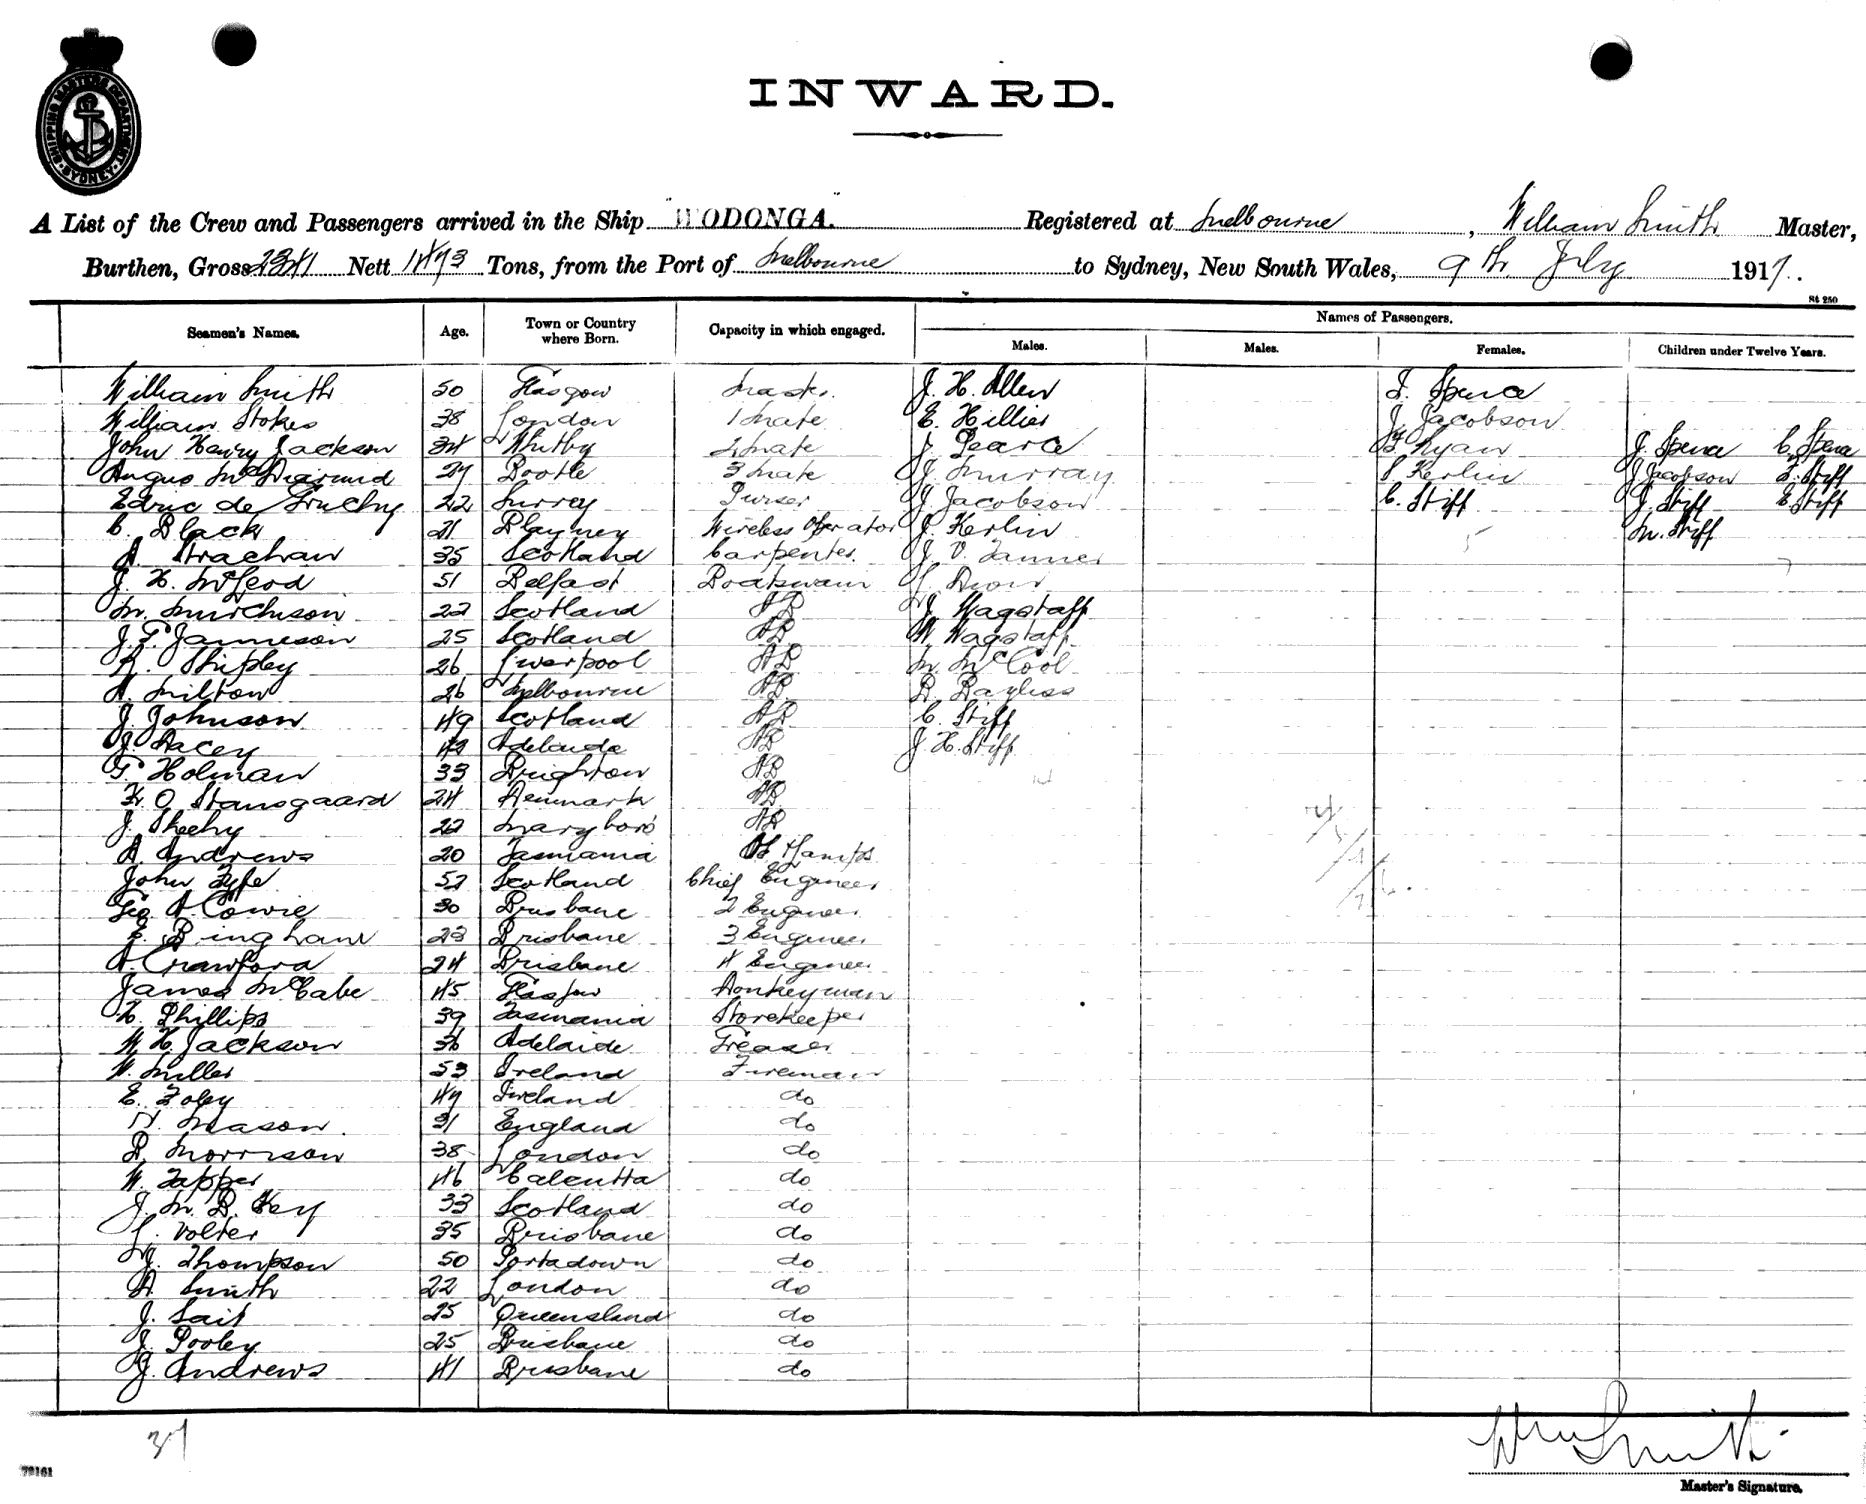 SHIPPING MASTERS DEPARTMENT SYDNEY
INWARD.
A List of the Crew and Passengers arrived in the Ship WODONGA. Registered at Melbourne, William Smith Master,
Burthen, Gross 2341 Nett 1473 Tons, from the Port of Melbourne to Sydney, New South Wales, 9th July 1917.
St 250
Seamen's Names. Age. Town or Country where Born. Capacity in which engaged. Names of Passengers.
Males. Males. Females. Children under Twelve Years.
William Smith 50 Glasgow Master. J. H. Allen J. Spence
William Stokes 38 London 1 Mate E. Hillier J. Jacobson
John Henry Jackson 34 Whitby 2 Mate J. Pearce Ryan J. Spence C. Spence
Angus McDiarmid 27 Bootle 3 Mate J. Murray Kerlin J. Jacobson Stiff
Edric de Gruchy 22 Surrey Purser J. Jacobson C. Stiff J. Stiff E. Stiff
C. Black 21 Blayney Wireless Operator J. Kerlin M. Stiff
A. Strachan 35 Scotland Carpenter. J. V. Tanner
J. H. McLeod 51 Belfast Boatswain L.
M. Murchison 22 Scotland AB J. Wagstaff
J. F. Jammeson 25 Scotland AB W. Wagstaff
R. Shipley 26 Liverpool AB M. McCool
A. Milton 26 Melbourne AB B. Bayliss
J. Johnson 49 Scotland AB C. Stiff
J. Dacey Adelaide AB J. H. Stiff
G. Holman 33 Brighton AB
K. O. Stansgaard 24 Denmark AB
J. Sheehy 22 Maryboro AB
A. Andrews 20 Tasmania Lamps
John Fyfe 52 Scotland Chief Engineer
Geo. A. Cowie 30 Brisbane 2 Engineer
E. Bingham 23 Brisbane 3 Engineer
A. Crawford 24 Brisbane 4 Engineer
James McCabe 45 Glasgow Donkeyman
H. Phillips 39 Tasmania Storekeeper
W. H. Jackson 36 Adelaide Greaser
W. Miller 53 Ireland Fireman
E. Foley 47 Ireland do
H. Mason 31 England do
D. Morrison 38 London do
W. Tapper 46 Calcutta do
J. M. B. Key 33 Scotland do
L. Volter 35 Brisbane do
J. Thompson 50 Portadown do
A. Smith 22 London do
J. Sait 25 Queensland do
J. Pooley 25 Brisbane do
J. Andrews 41 Brisbane do
37
Wm Smith
72161
Master's Signature.